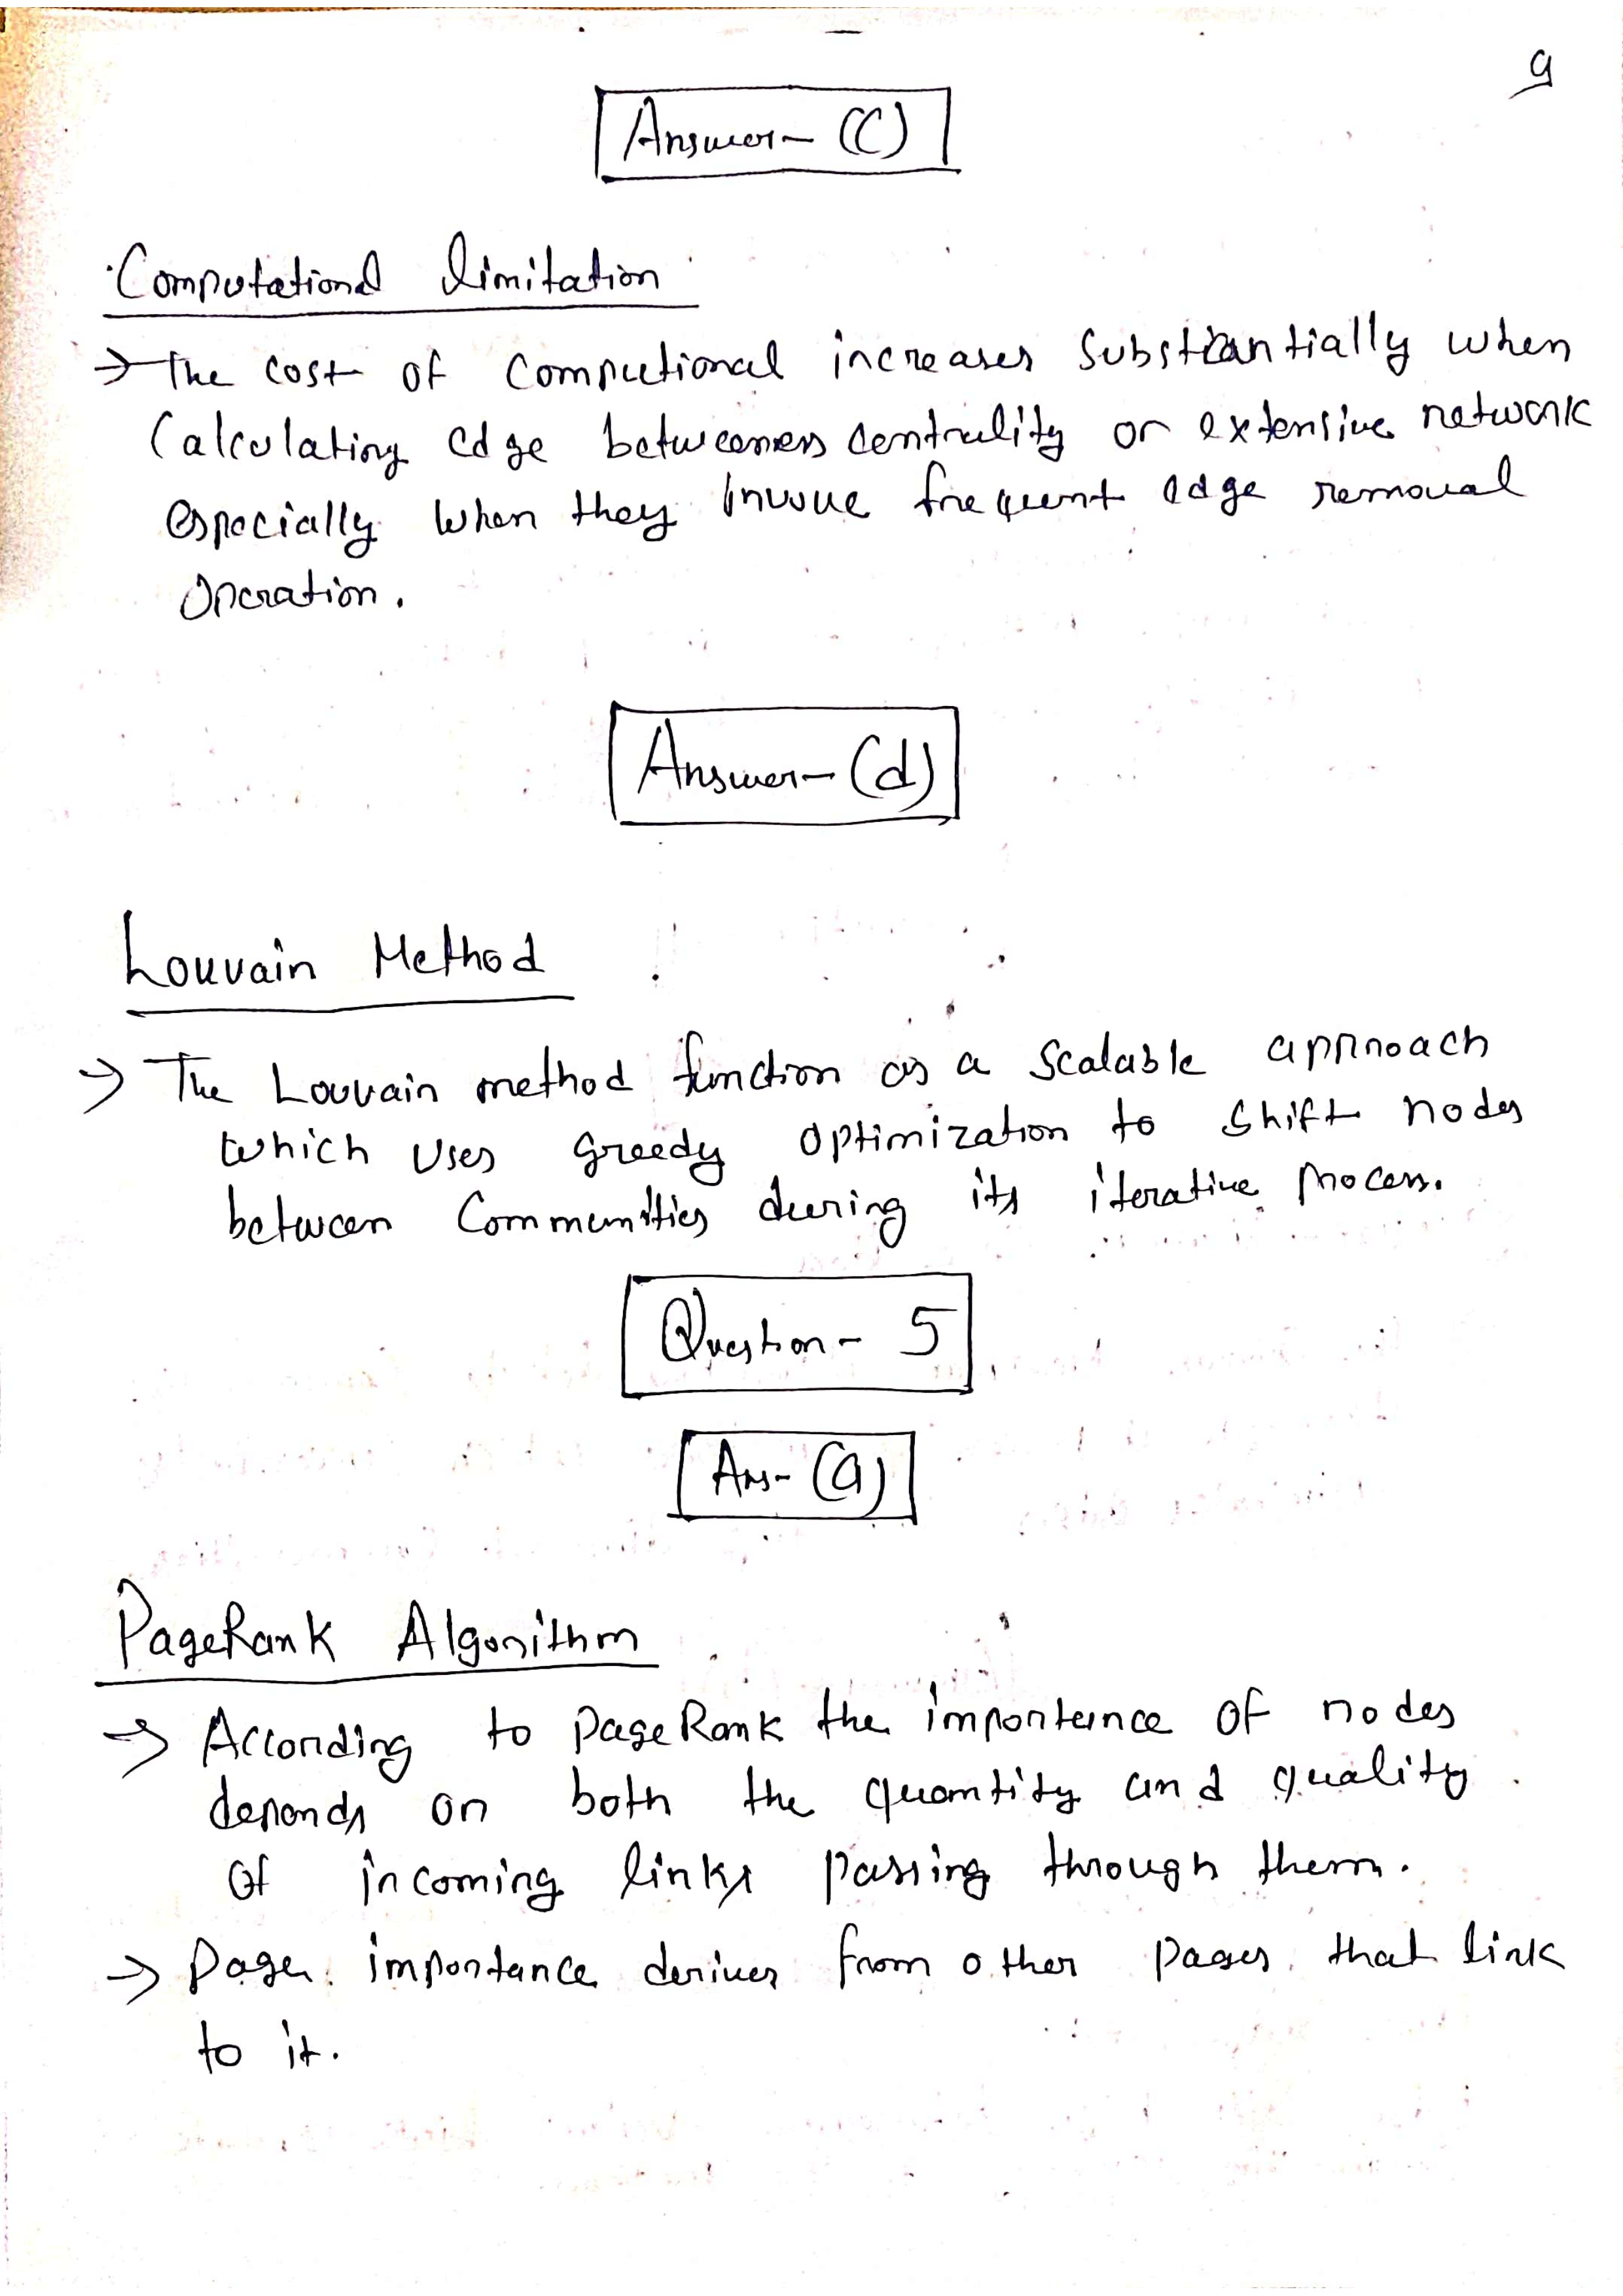 9
Answer - (C)
Computational limitation
→ The cost of compuctional increases substiantially when
Calculating edge betweeness centrality or extensive network
especially when they invove frequent edge removal
operation.
Answer - (d)
Louvain Method
→ The Louvain method function as a scalable approach
which uses greedy optimization to shift nodes
between communities during its iterative process.
Question - 5
Ans - (a)
PageRank Algorithm
→ According to PageRank the importance of nodes
depends on both the quantity and quality
of incoming links passing through them.
→ Page importance derives from other pages that link
to it.